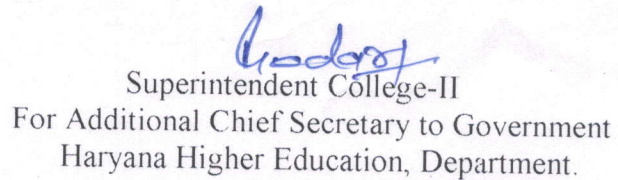 Superintendent College-II
For Additional Chief Secretary to Government
Haryana Higher Education, Department.